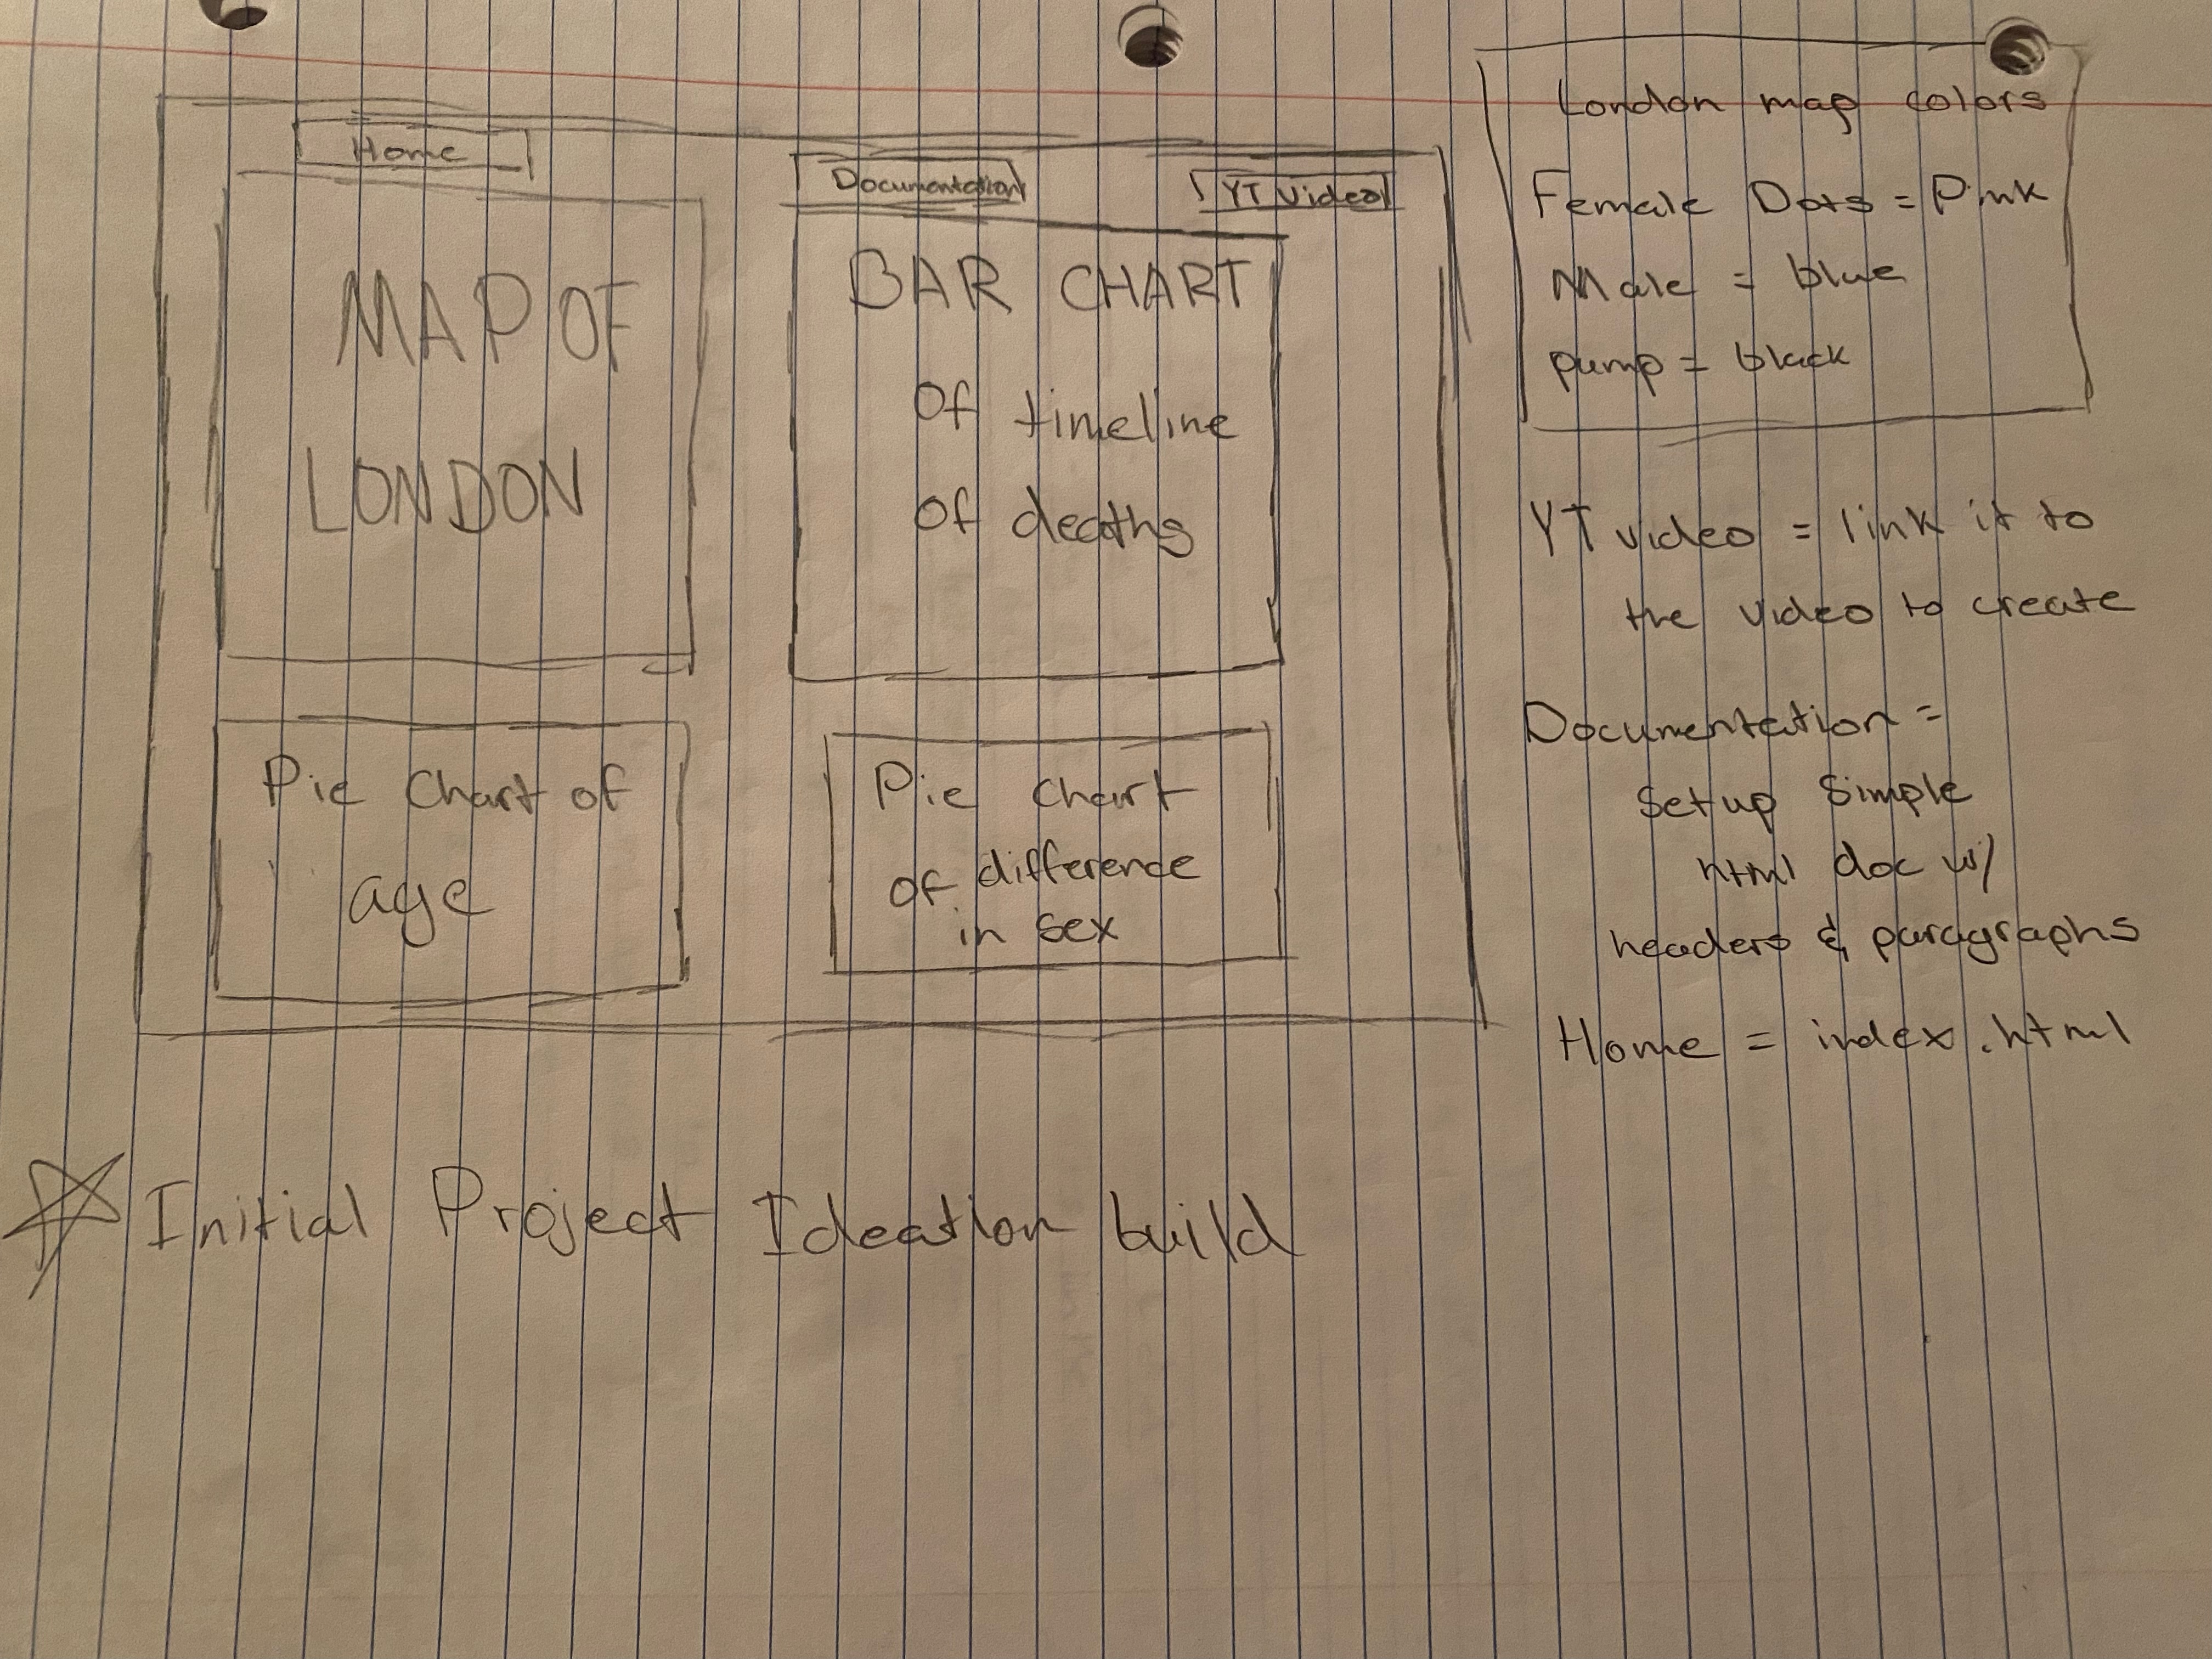 Home
Documentation
YT video
MAP OF
LONDON
BAR CHART
of timeline
of deaths
Pie Chart of
age
Pie chart
of difference
in sex
London map colors
Female Dots = Pink
Male = blue
pump = black
YT video = link it to
the video to create
Documentation =
setup simple
html doc w/
headers & paragraphs
Home = index.html
Initial Project Ideation build